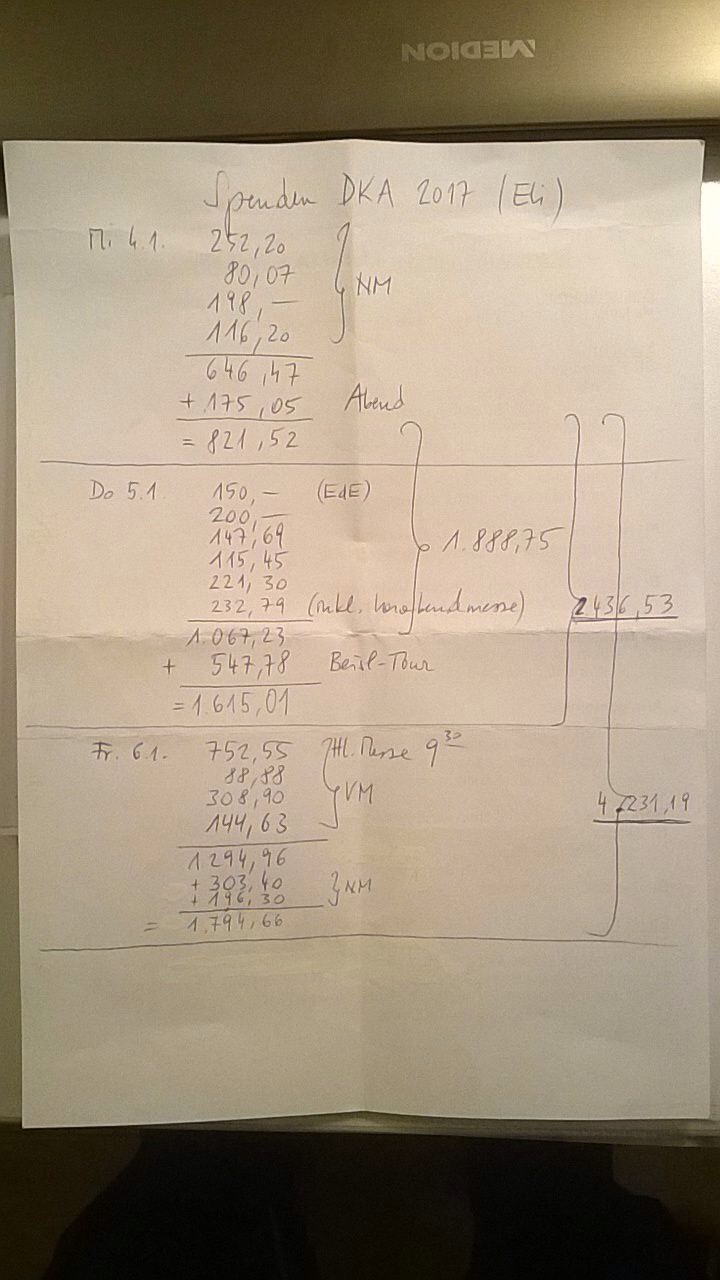 MEDION
Spenden DKA 2017 (Eli)
Mi 4.1. 252,20
80,07
198,— NM
116,20
646,47
+ 175,05 Abend
= 821,52
Do 5.1. 150,— (EdE)
200,—
147,69
115,45 1.888,75
221,30
232,79 (inkl. Vorabendmesse) 2436,53
1.067,23
+ 547,78 Beisl-Tour
= 1.615,01
Fr. 6.1. 752,55 Hl. Messe 9 30
88,88
308,90 VM
144,63 4.231,19
1294,96
+ 303,40 NM
+ 196,30
= 1.794,66